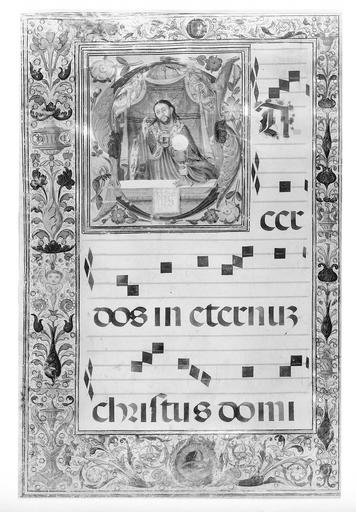 cer
dos in eternuz
christus domi